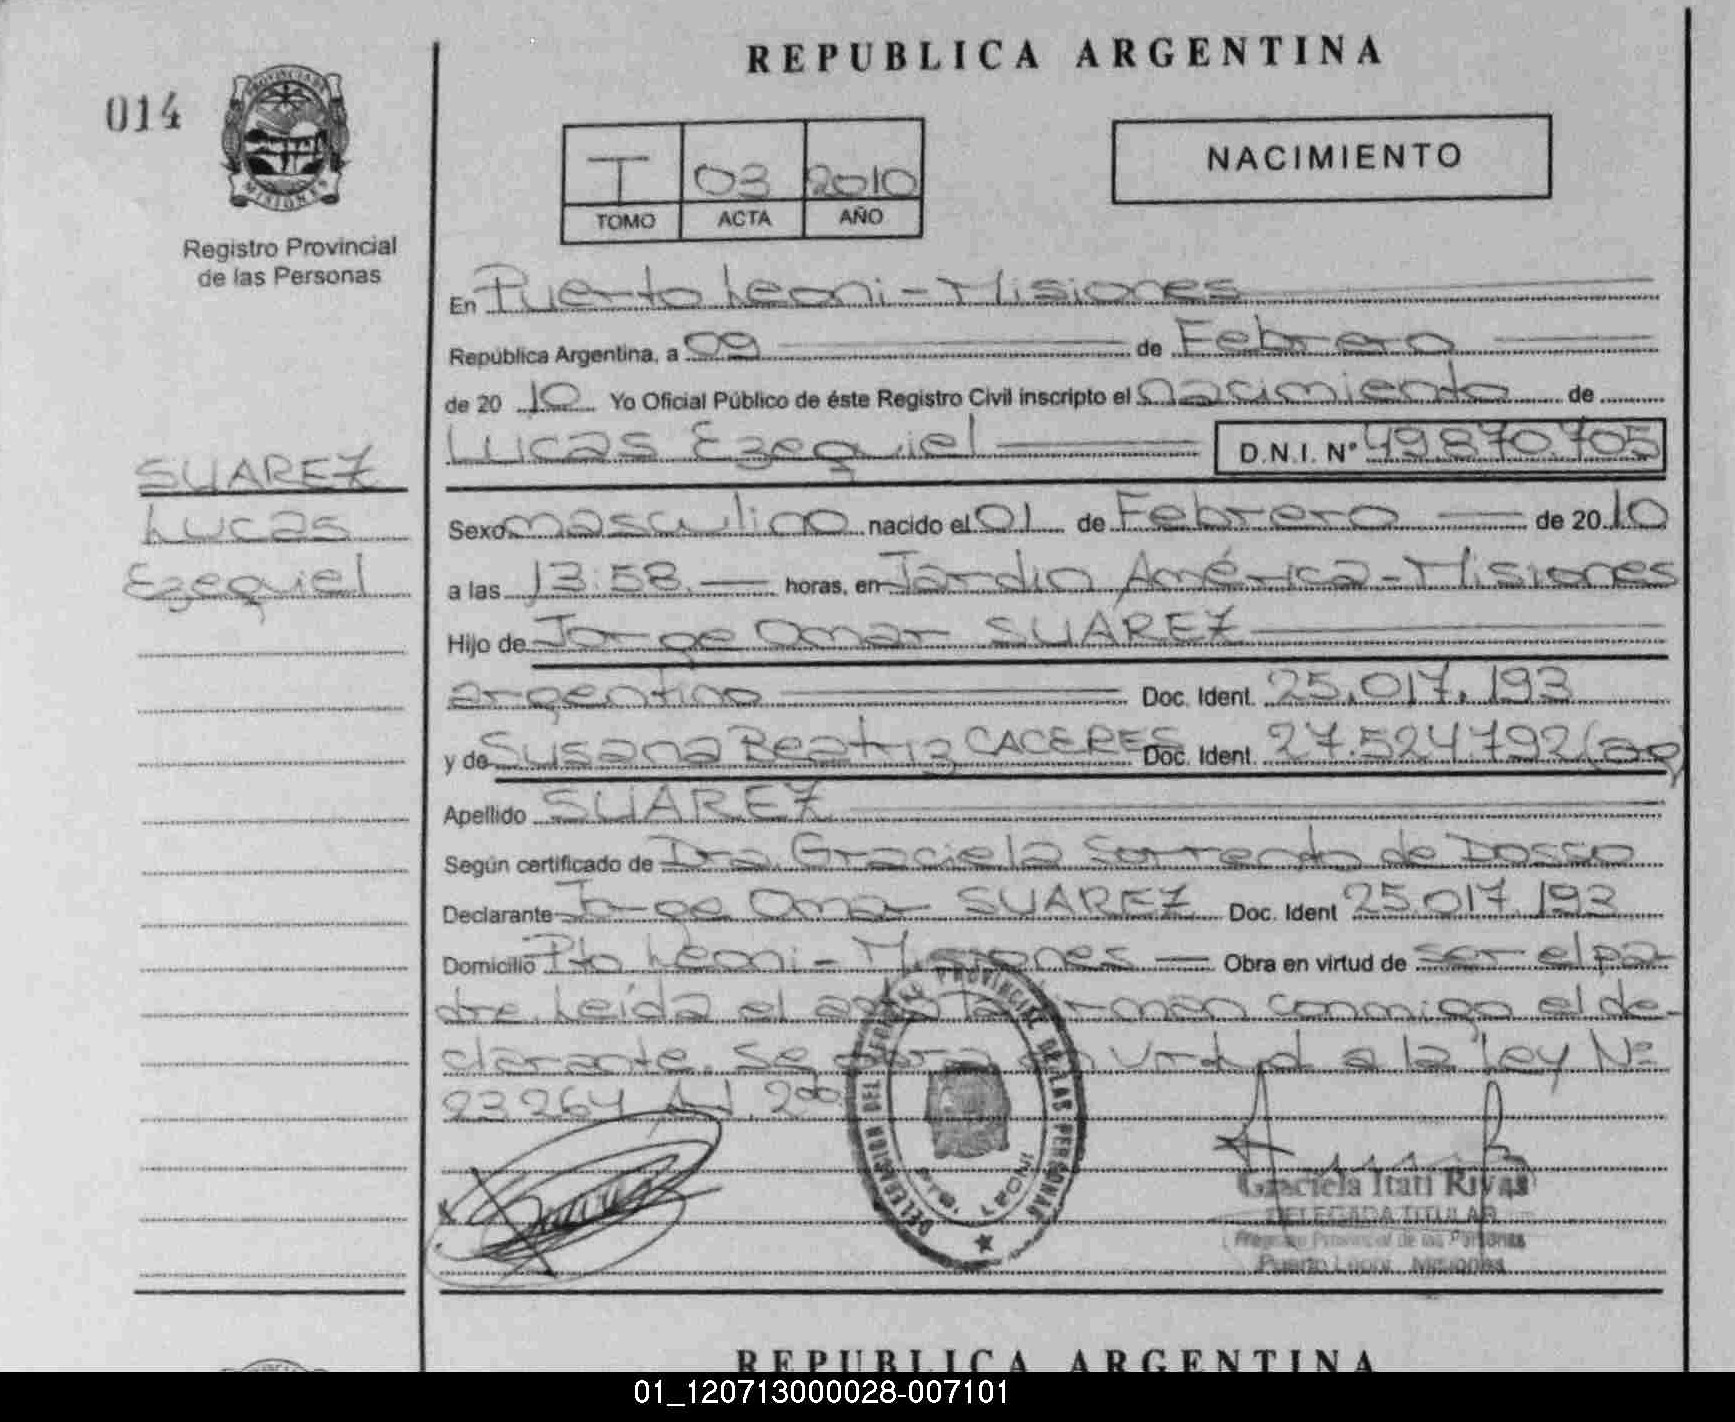 REPUBLICA ARGENTINA
014
PROVINCIA DE
MISIONES
Registro Provincial
de las Personas
T 03 2010
TOMO ACTA AÑO
NACIMIENTO
En Puerto Leoni - Misiones
República Argentina, a 09 de Febrero
de 20 10 Yo Oficial Público de éste Registro Civil inscripto el nacimiento de
Lucas Ezequiel D.N.I. Nº 49.870.705
SUAREZ
Lucas
Ezequiel
Sexo masculino nacido el 01 de Febrero de 20 10
a las 13:58. horas, en Jardín América - Misiones
Hijo de Jorge Omar SUAREZ
argentino Doc. Ident. 25.017.193
y de Susana Beatriz CACERES Doc. Ident. 27.524.792 (ag)
Apellido SUAREZ
Según certificado de Dra. Graciela de Dosso
Declarante Jorge Omar SUAREZ Doc. Ident 25.017.193
Domicilio Pto Leoni - Misiones Obra en virtud de ser el pa-
dre. Leída el acta la firman conmigo el de-
clarante. Se obra en virtud a la ley Nº
23264 Art. 2
DELEGACION DEL REGISTRO PROVINCIAL DE LAS PERSONAS
PTO. LEONI
Graciela Itatí Rivas
DELEGADA TITULAR
Registro Provincial de las Personas
Puerto Leoni - Misiones
REPUBLICA ARGENTINA
01_120713000028-007101